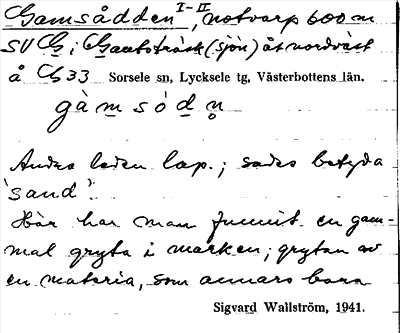 Gamsådden I-II, notvarp 600 m
SV G; Gautoträsk (sjön) åt nordväst
å G33 Sorsele sn, Lycksele tg, Västerbottens län.
gàmsódn
Andra leden lap.; sades betyda
'sand'.
Här har man funnit en gam-
mal gryta i marken; grytan av
en materia, som annars bara
Sigvard Wallström, 1941.